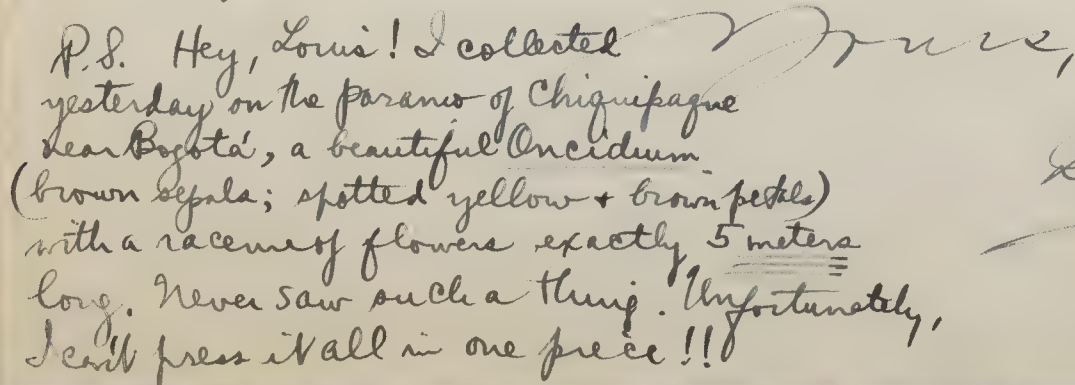 P.S. Hey, Louis! I collected
yesterday on the paramo of Chiquipaque
near Bogotá, a beautiful Oncidium
(brown sepals; spotted yellow + brown petals)
with a raceme of flowers exactly 5 meters
long. Never saw such a thing. Unfortunately,
I can't press it all in one piece!!
Yours,